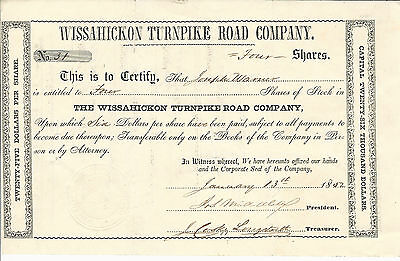 WISSAHICKON TURNPIKE ROAD COMPANY.
No. 31
= Four = Shares.
This is to Certify, That Joseph Warner
is entitled to Four Shares of Stock in
THE WISSAHICKON TURNPIKE ROAD COMPANY,
Upon which Six Dollars per share have been paid, subject to all payments to
become due thereupon; Transferable only on the Books of the Company in Per-
son or by Attorney.
In Witness whereof, We have hereunto affixed our hands
and the Corporate Seal of the Company,
January 13th 185
President.
J. Cooke Longstreth
Treasurer.
TWENTY-FIVE DOLLARS PER SHARE.
CAPITAL TWENTY-SIX THOUSAND DOLLARS.